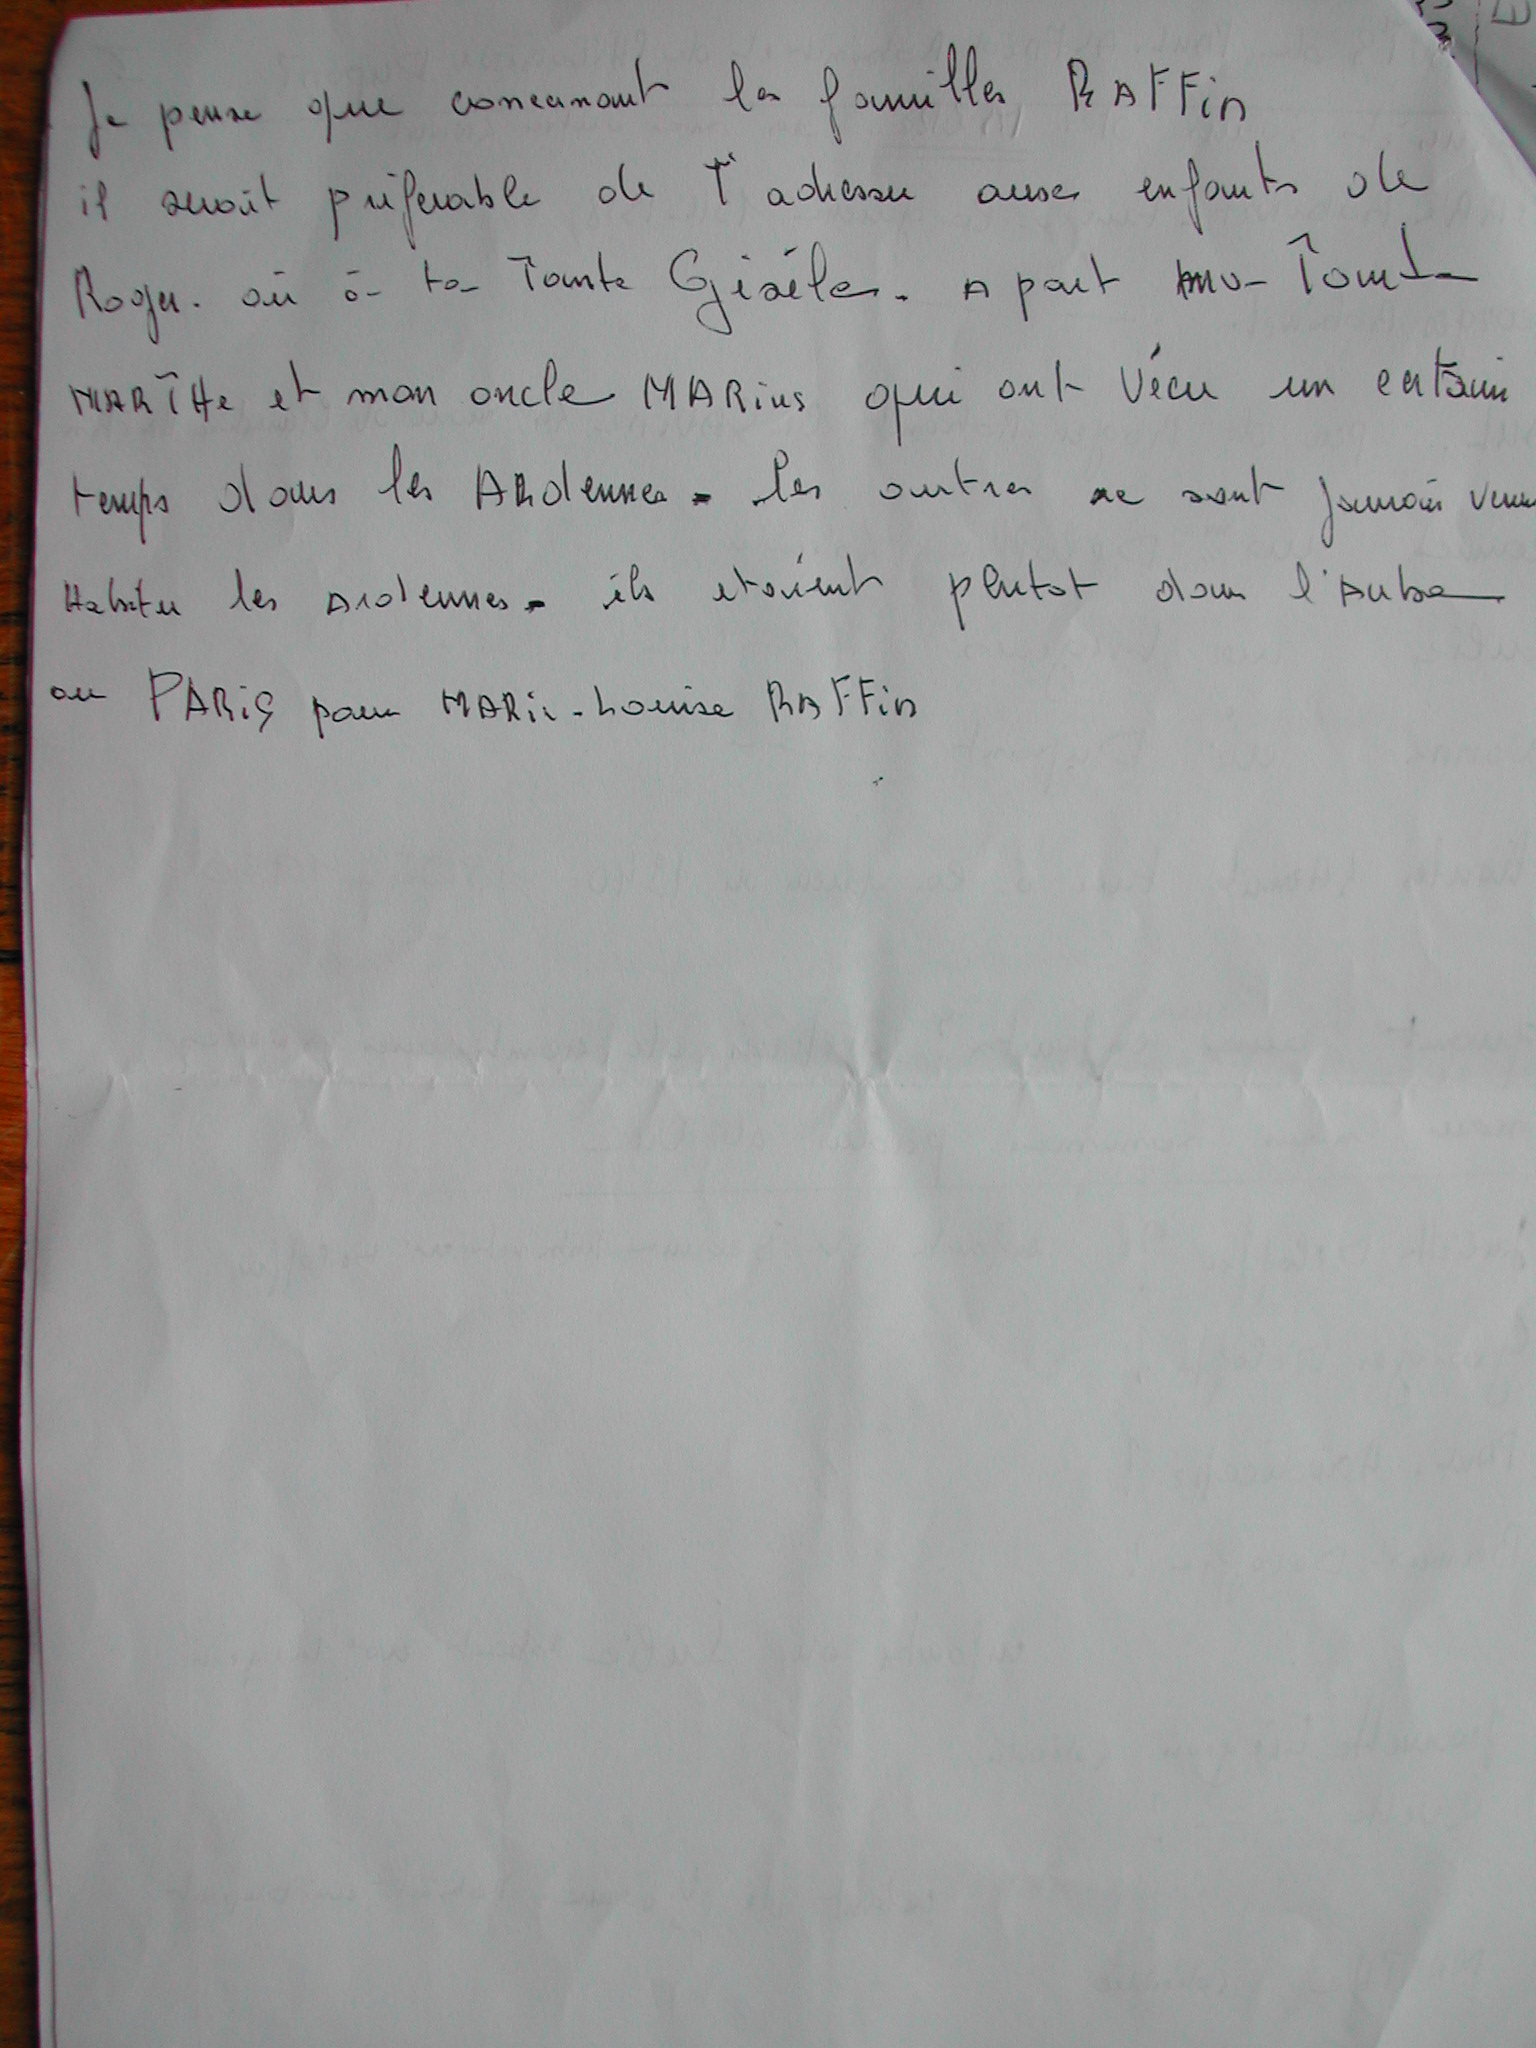 Je pense que concernant les familles RAFFin
il serait préférable de T'adresser aux enfants de
Roger. où à ta Tante Gisèle. A part ma Tante
MARTHe et mon oncle MARius qui ont Vécu un certain
temps dans les ARdennes. les autres ne sont Jamais venus
Habiter les ARdennes. ils etaient plutot dans l'Aube
ou PARiS pour MARie-Louise RAFFin